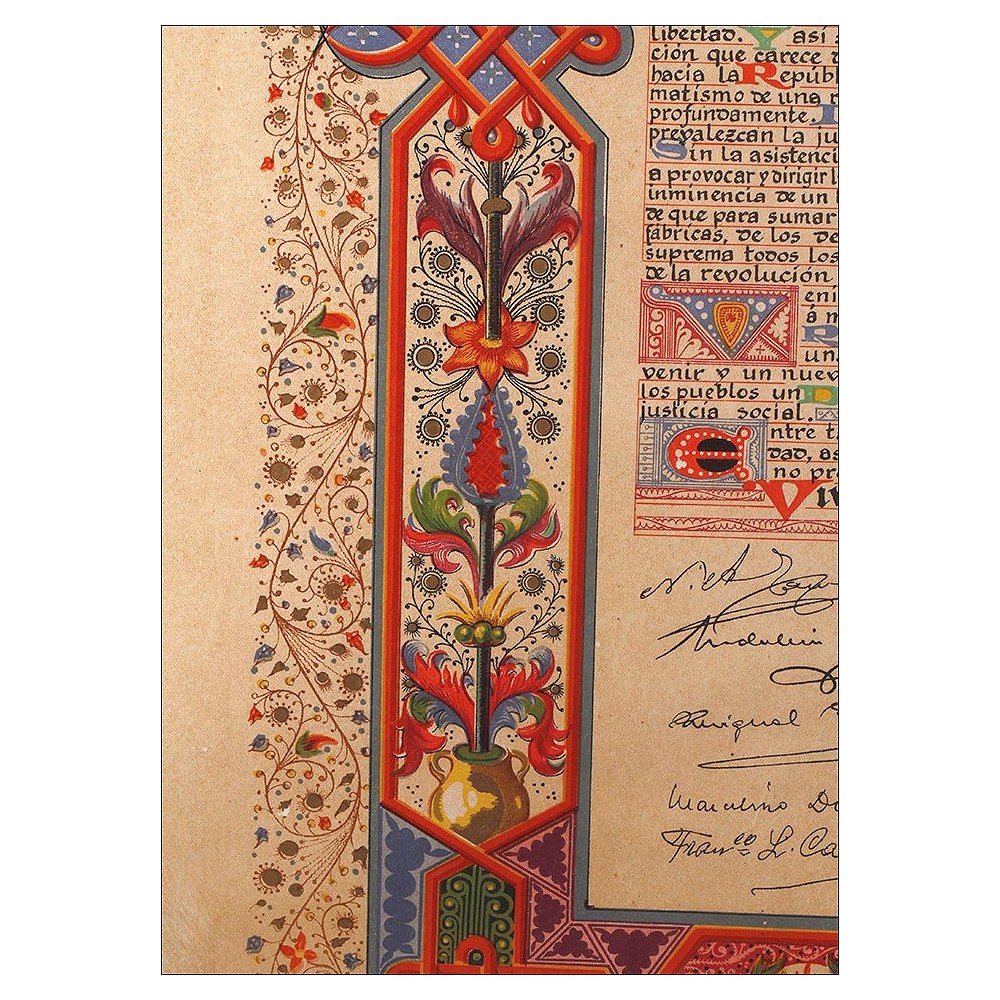 libertad. Y así
ción que carece
hacía la Repúbl
matismo de una
profundamente.
prevalezcan la ju
Sin la asistenci
a provocar y dirigir l
inminencia de un
de que para sumar
fábricas, de los de
suprema todos los
de la revolución
eni
á m
un
venir y un nuev
los pueblos un
justicia social.
Entre t
dad, as
no pr
Viv
Marcelino D
Fran.co L. Ca